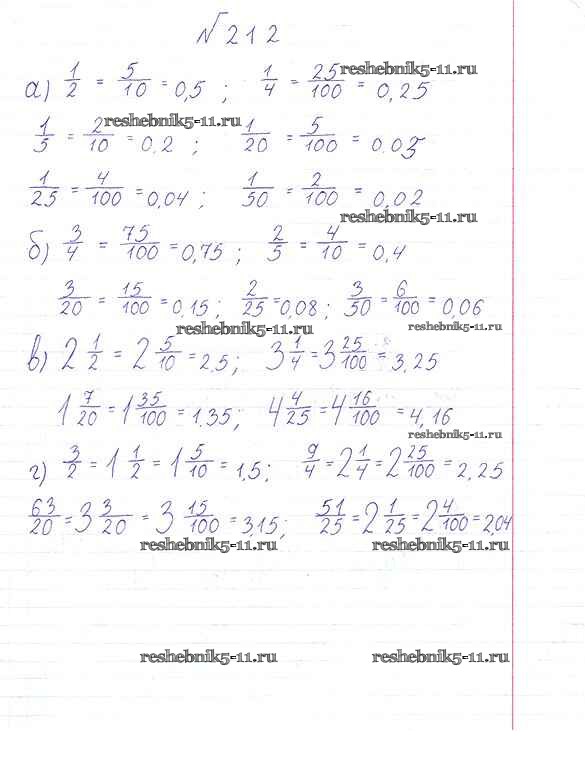 №212
а) 1/2 = 5/10 = 0,5 ; 1/4 = 25/100 = 0,25
reshebnik5-11.ru
1/5 = 2/10 = 0,2 ; 1/20 = 5/100 = 0.05
reshebnik5-11.ru
1/25 = 4/100 = 0,04 ; 1/50 = 2/100 = 0,02
reshebnik5-11.ru
б) 3/4 = 75/100 = 0,75 ; 2/5 = 4/10 = 0,4
3/20 = 15/100 = 0,15 ; 2/25 = 0,08 ; 3/50 = 6/100 = 0,06
reshebnik5-11.ru reshebnik5-11.ru
в) 2 1/2 = 2 5/10 = 2,5 ; 3 1/4 = 3 25/100 = 3,25
1 7/20 = 1 35/100 = 1,35 ; 4 4/25 = 4 16/100 = 4,16
reshebnik5-11.ru
г) 3/2 = 1 1/2 = 1 5/10 = 1,5 ; 9/4 = 2 1/4 = 2 25/100 = 2,25
63/20 = 3 3/20 = 3 15/100 = 3,15 ; 51/25 = 2 1/25 = 2 4/100 = 2,04
reshebnik5-11.ru reshebnik5-11.ru
reshebnik5-11.ru reshebnik5-11.ru